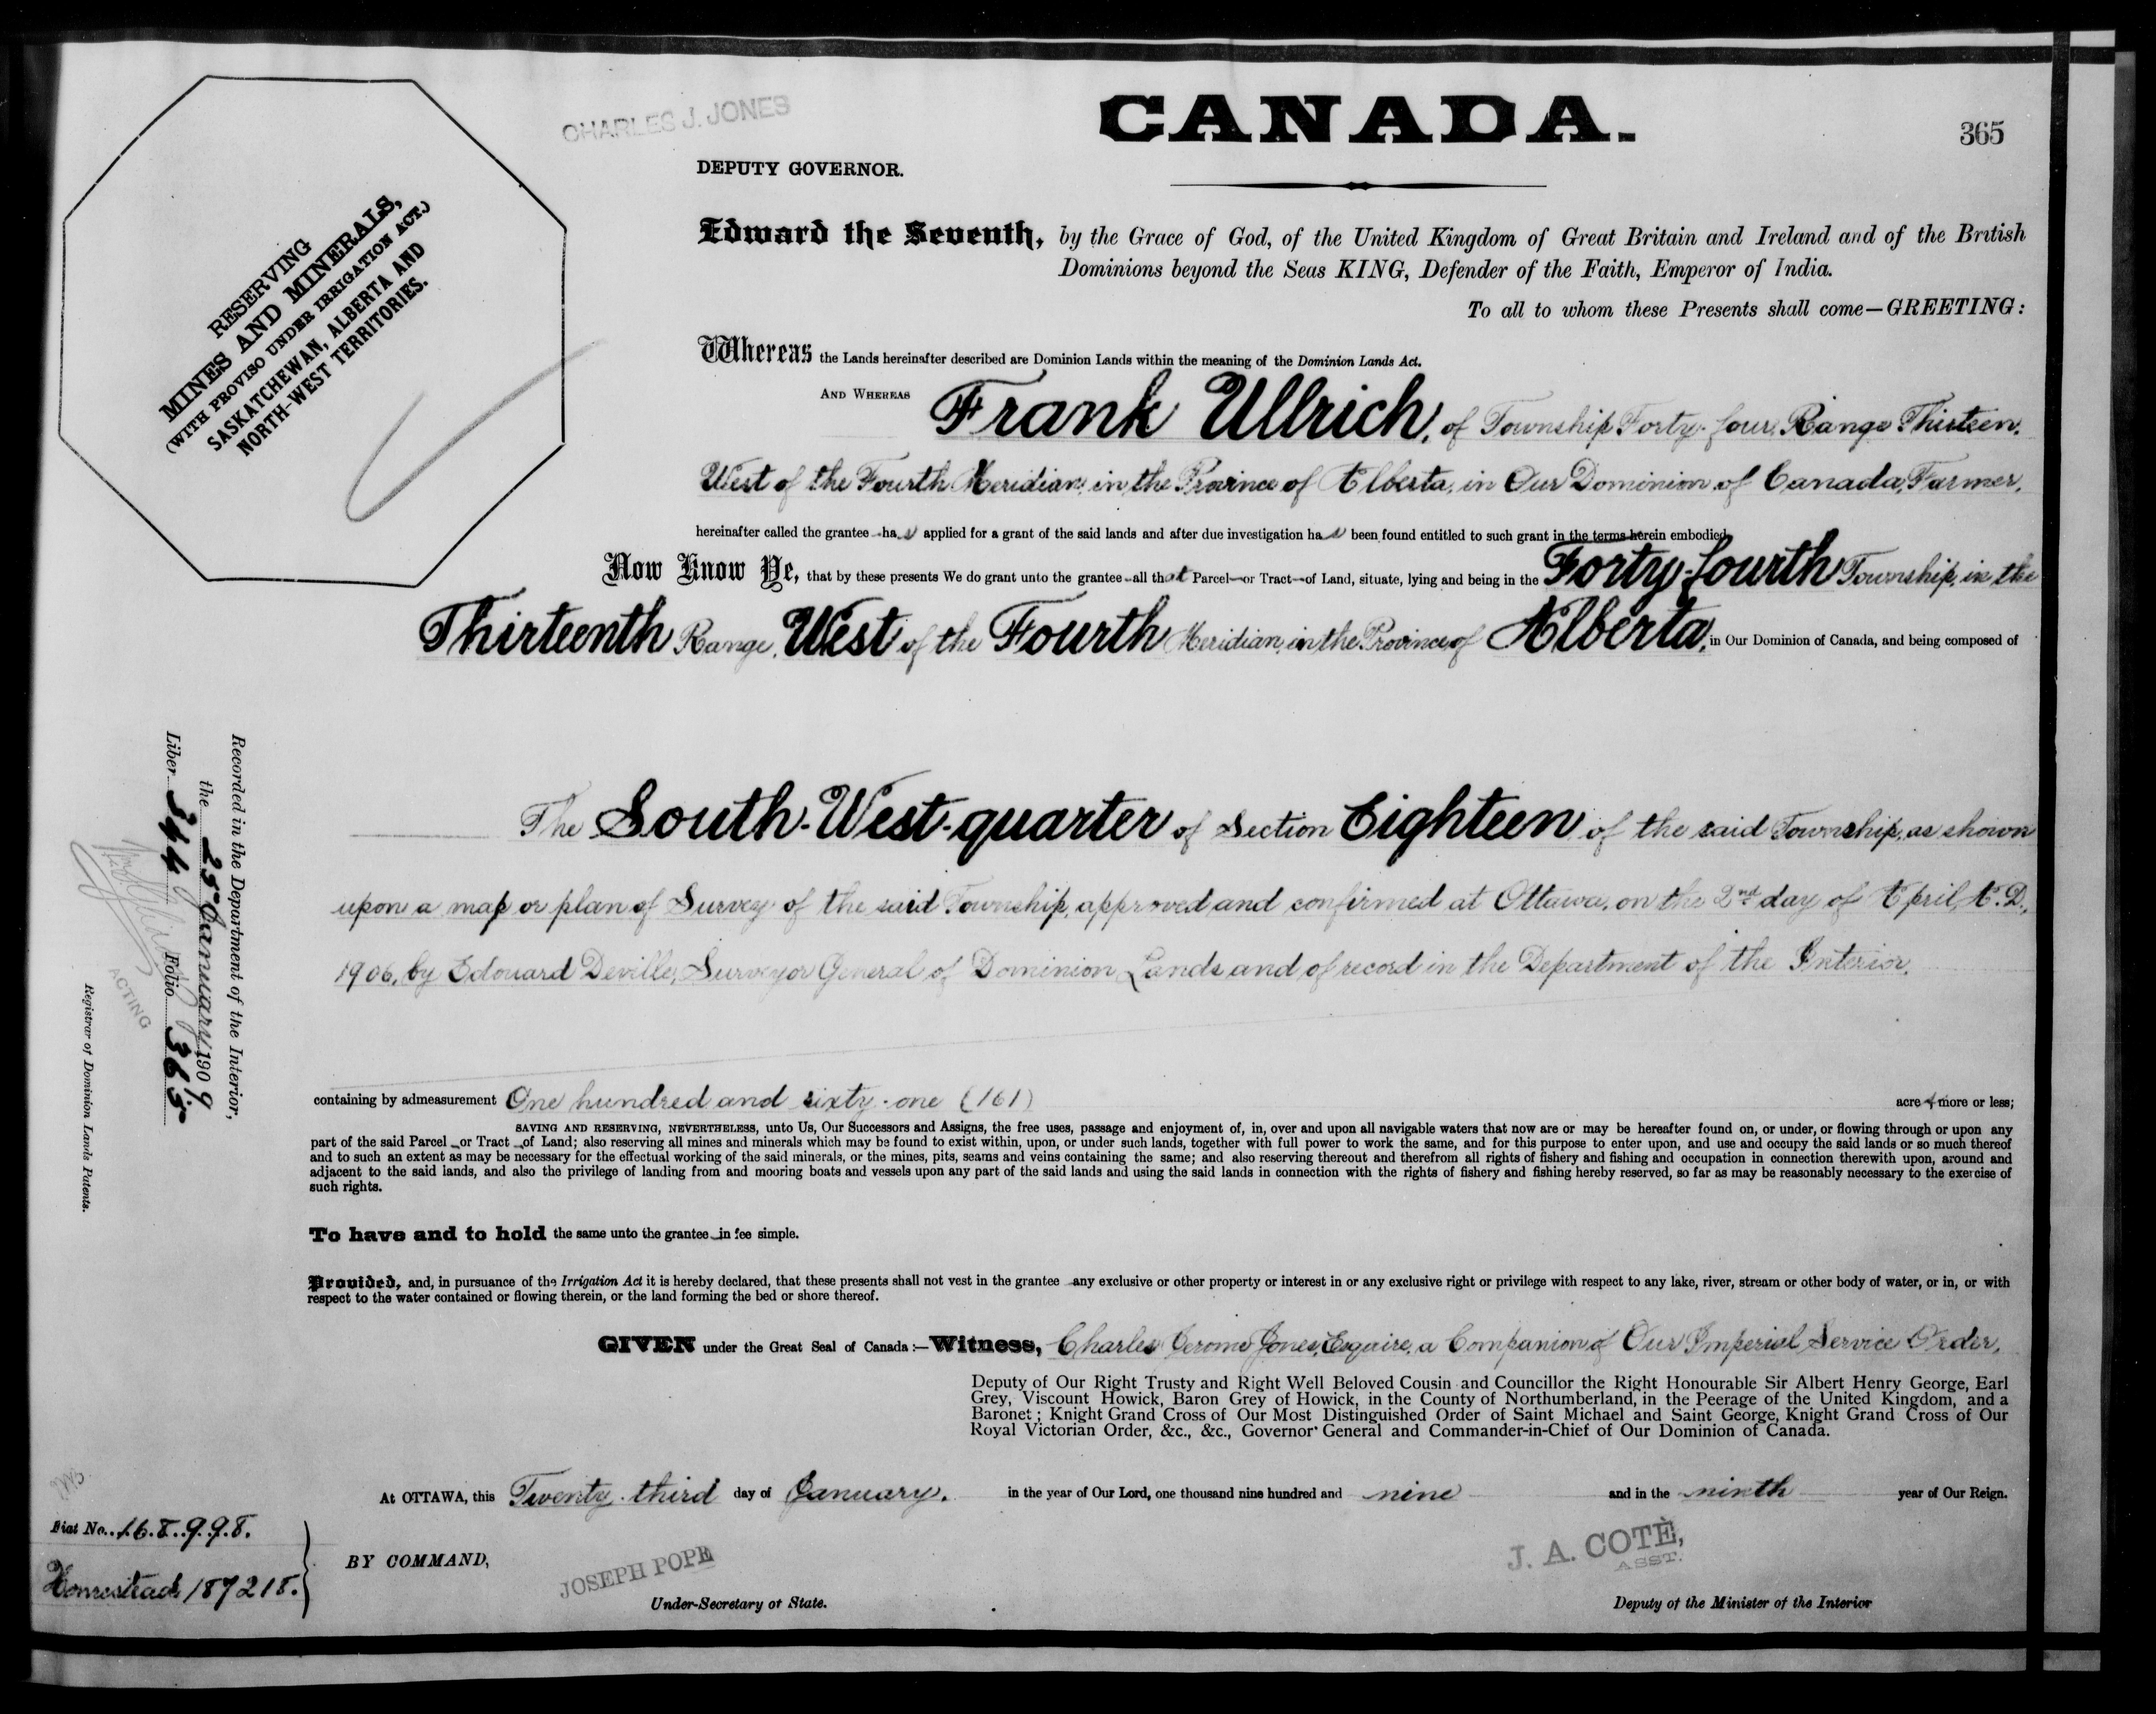 CHARLES J. JONES
CANADA.
365
DEPUTY GOVERNOR.
RESERVING
MINES AND MINERALS,
(WITH PROVISO UNDER IRRIGATION ACT.)
SASKATCHEWAN, ALBERTA AND
NORTH-WEST TERRITORIES.
Edward the Seventh, by the Grace of God, of the United Kingdom of Great Britain and Ireland and of the British
Dominions beyond the Seas KING, Defender of the Faith, Emperor of India.
To all to whom these Presents shall come—GREETING:
Whereas the Lands hereinafter described are Dominion Lands within the meaning of the Dominion Lands Act.
AND WHEREAS Frank Ullrich, of Township Forty-four, Range Thirteen,
West of the Fourth Meridian, in the Province of Alberta, in Our Dominion of Canada, Farmer,
hereinafter called the grantee has applied for a grant of the said lands and after due investigation has been found entitled to such grant in the terms herein embodied.
Now Know Ye, that by these presents We do grant unto the grantee all that Parcel or Tract of Land, situate, lying and being in the Forty-fourth Township, in the
Thirteenth Range, West of the Fourth Meridian, in the Province of Alberta, in Our Dominion of Canada, and being composed of
The South-West-quarter of Section Eighteen of the said Township, as shown
upon a map or plan of Survey of the said Township, approved and confirmed at Ottawa, on the 2nd day of April, A.D.,
1906, by Edouard Deville, Surveyor General of Dominion Lands and of record in the Department of the Interior.
containing by admeasurement One hundred and sixty-one (161) acres more or less;
SAVING AND RESERVING, NEVERTHELESS, unto Us, Our Successors and Assigns, the free uses, passage and enjoyment of, in, over and upon all navigable waters that now are or may be hereafter found on, or under, or flowing through or upon any
part of the said Parcel or Tract of Land; also reserving all mines and minerals which may be found to exist within, upon, or under such lands, together with full power to work the same, and for this purpose to enter upon, and use and occupy the said lands or so much thereof
and to such an extent as may be necessary for the effectual working of the said minerals, or the mines, pits, seams and veins containing the same; and also reserving thereout and therefrom all rights of fishery and fishing and occupation in connection therewith upon, around and
adjacent to the said lands, and also the privilege of landing from and mooring boats and vessels upon any part of the said lands and using the said lands in connection with the rights of fishery and fishing hereby reserved, so far as may be reasonably necessary to the exercise of
such rights.
To have and to hold the same unto the grantee in fee simple.
Provided, and, in pursuance of the Irrigation Act it is hereby declared, that these presents shall not vest in the grantee any exclusive or other property or interest in or any exclusive right or privilege with respect to any lake, river, stream or other body of water, or in, or with
respect to the water contained or flowing therein, or the land forming the bed or shore thereof.
GIVEN under the Great Seal of Canada:—Witness, Charles Jerome Jones, Esquire, a Companion of Our Imperial Service Order,
Deputy of Our Right Trusty and Right Well Beloved Cousin and Councillor the Right Honourable Sir Albert Henry George, Earl
Grey, Viscount Howick, Baron Grey of Howick, in the County of Northumberland, in the Peerage of the United Kingdom, and a
Baronet; Knight Grand Cross of Our Most Distinguished Order of Saint Michael and Saint George, Knight Grand Cross of Our
Royal Victorian Order, &c., &c., Governor General and Commander-in-Chief of Our Dominion of Canada.
At OTTAWA, this Twenty-third day of January, in the year of Our Lord, one thousand nine hundred and nine and in the ninth year of Our Reign.
BY COMMAND,
JOSEPH POPE
Under-Secretary of State.
J. A. COTÈ,
ASST.
Deputy of the Minister of the Interior
Fiat No. 168998.
Homestead 187218.
Recorded in the Department of the Interior,
the 25 January 1909
Liber 344 Folio 365
ACTING
Registrar of Dominion Lands Patents.